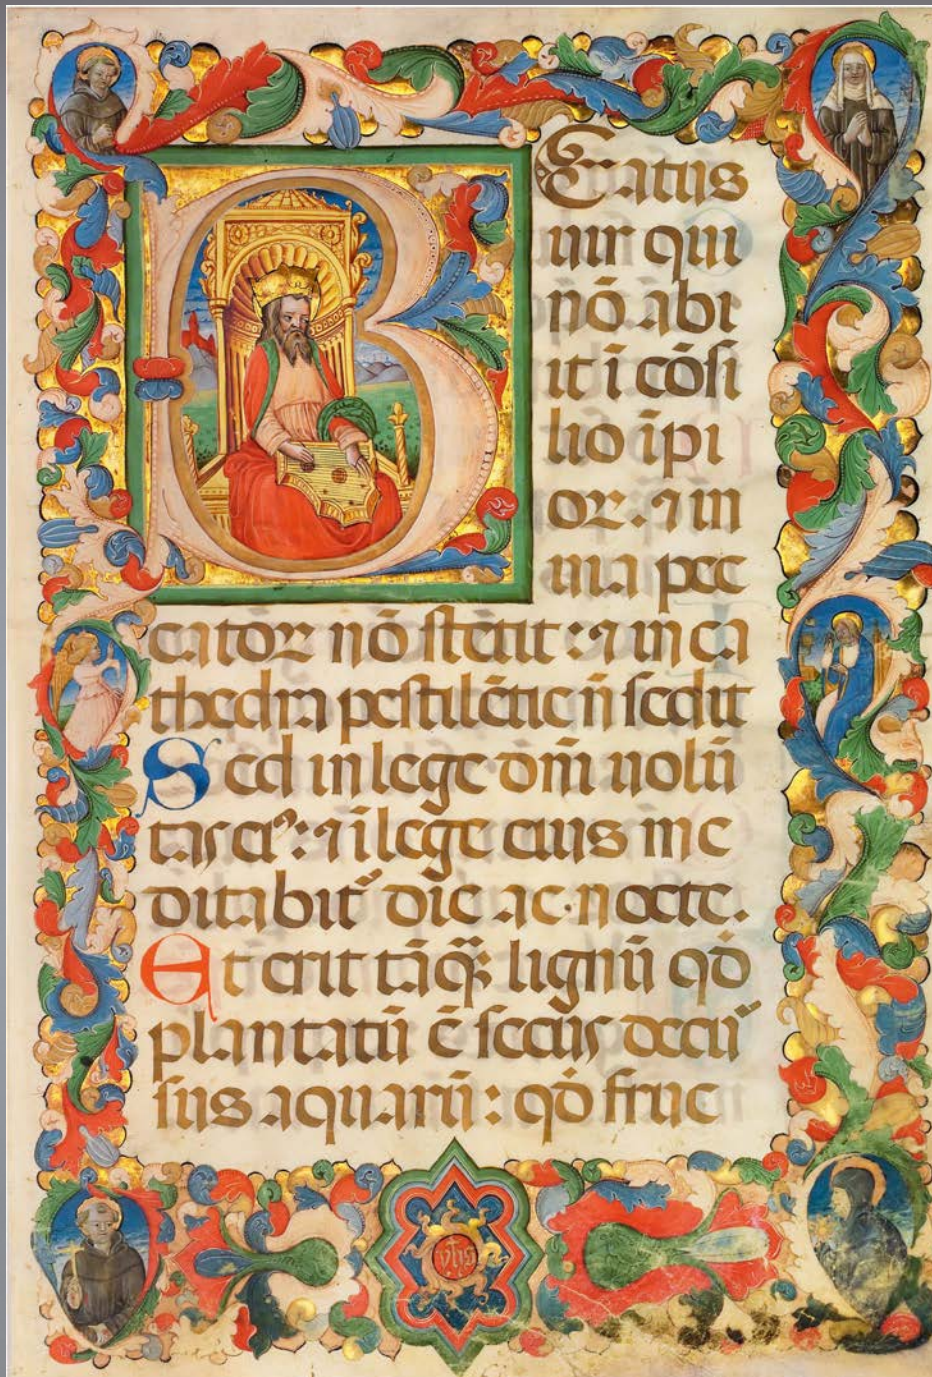 Beatus
uir qui
nō abi
it i cōsi
lio īpi
oꝝ. ⁊ in
uia pec
catoꝝ nō ſtētit: ⁊ in ca
thedra peſtilētie n̄ ſedit
Sed in lege dn̄i uolū
tas eiꝰ: ⁊ ī lege eius me
ditabit᷑ die ac nocte.
Et erit tāqꝫ lignū qd̄
plantatū ē ſecus decur
ſus aquarū: qd̄ fruc
yhs